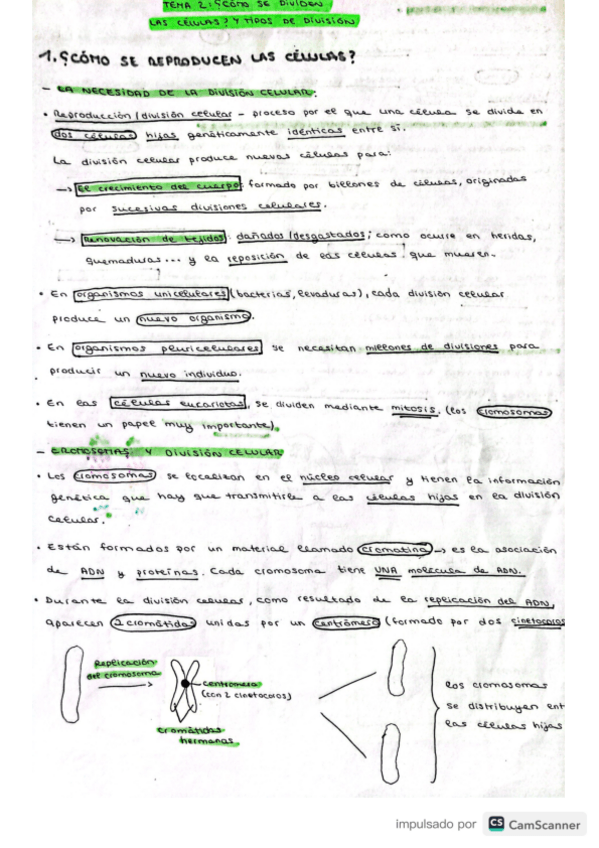 TEMA 2: ¿CÓMO SE DIVIDEN
LAS CÉLULAS? Y TIPOS DE DIVISIÓN
1. ¿CÓMO SE REPRODUCEN LAS CÉLULAS?
- LA NECESIDAD DE LA DIVISIÓN CELULAR:
• Reproducción/división celular - proceso por el que una célula se divide en
dos células hijas genéticamente idénticas entre sí.
La división celular produce nuevas células para:
→ El crecimiento del cuerpo: formado por billones de células, originadas
por sucesivas divisiones celulares.
→ Renovación de tejidos dañados/desgastados; como ocurre en heridas,
quemaduras... y la reposición de las células que mueren.
• En organismos unicelulares (bacterias, levaduras), cada división celular
produce un nuevo organismo.
• En organismos pluricelulares se necesitan millones de divisiones para
producir un nuevo individuo.
• En las células eucariotas, se dividen mediante mitosis. (los cromosomas
tienen un papel muy importante).
- CROMOSOMAS Y DIVISIÓN CELULAR
• Los cromosomas se localizan en el núcleo celular y tienen la información
genética que hay que transmitirle a las células hijas en la división
celular.
• Están formados por un material llamado cromatina → es la asociación
de ADN y proteínas. Cada cromosoma tiene UNA molécula de ADN.
• Durante la división celular, como resultado de la replicación del ADN,
aparecen 2 cromátidas unidas por un centrómero (formado por dos cinetocoros
Replicación
del cromosoma
centrómero
(con 2 cinetocoros)
cromátidas
hermanas
los cromosomas
se distribuyen ent
las células hijas
impulsado por CS CamScanner